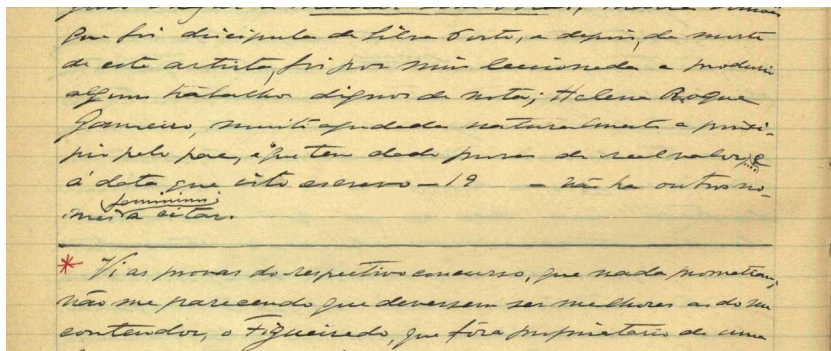 que foi discipula de Silva Porto, e depois, da morte
de este artista, foi por mim leccionada e produziu
alguns trabalhos dignos de nota; Helena Roque
Gameiro, muito ajudada naturalmente a princi-
pio pelo pae, e que tem dado provas de real valor, e
á data que isto escrevo - 19 - não ha outros no-
femininos
mes a citar.
* Vi as provas do respectivo concurso, que nada promettiam,
não me parecendo que devessem ser melhores as do seu
contendor, o Figueiredo, que fôra proprietario de uma